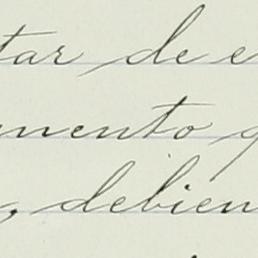 tar de e
mento q
, debien